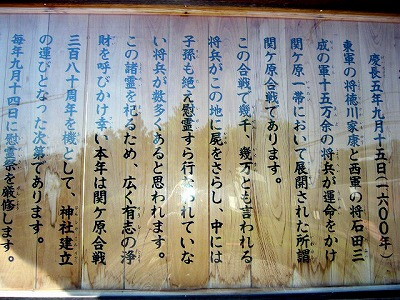 慶長五年九月十五日(一六〇〇年)
東軍の将徳川家康と西軍の将石田三
成の軍十五万余の将兵が運命をかけ
関ケ原一帯において展開された所謂
関ケ原合戦であります。
この合戦で幾千、幾万とも言われる
将兵がこの地に屍をさらし、中には
子孫も絶え慰霊すら行なわれていな
い将兵が数多くあると思われます。
この諸霊を祀るため、広く有志の浄
財を呼びかけ幸い本年は関ケ原合戦
三百八十周年を機として、神社建立
の運びとなった次第であります。
毎年九月十四日に慰霊祭を厳修します。